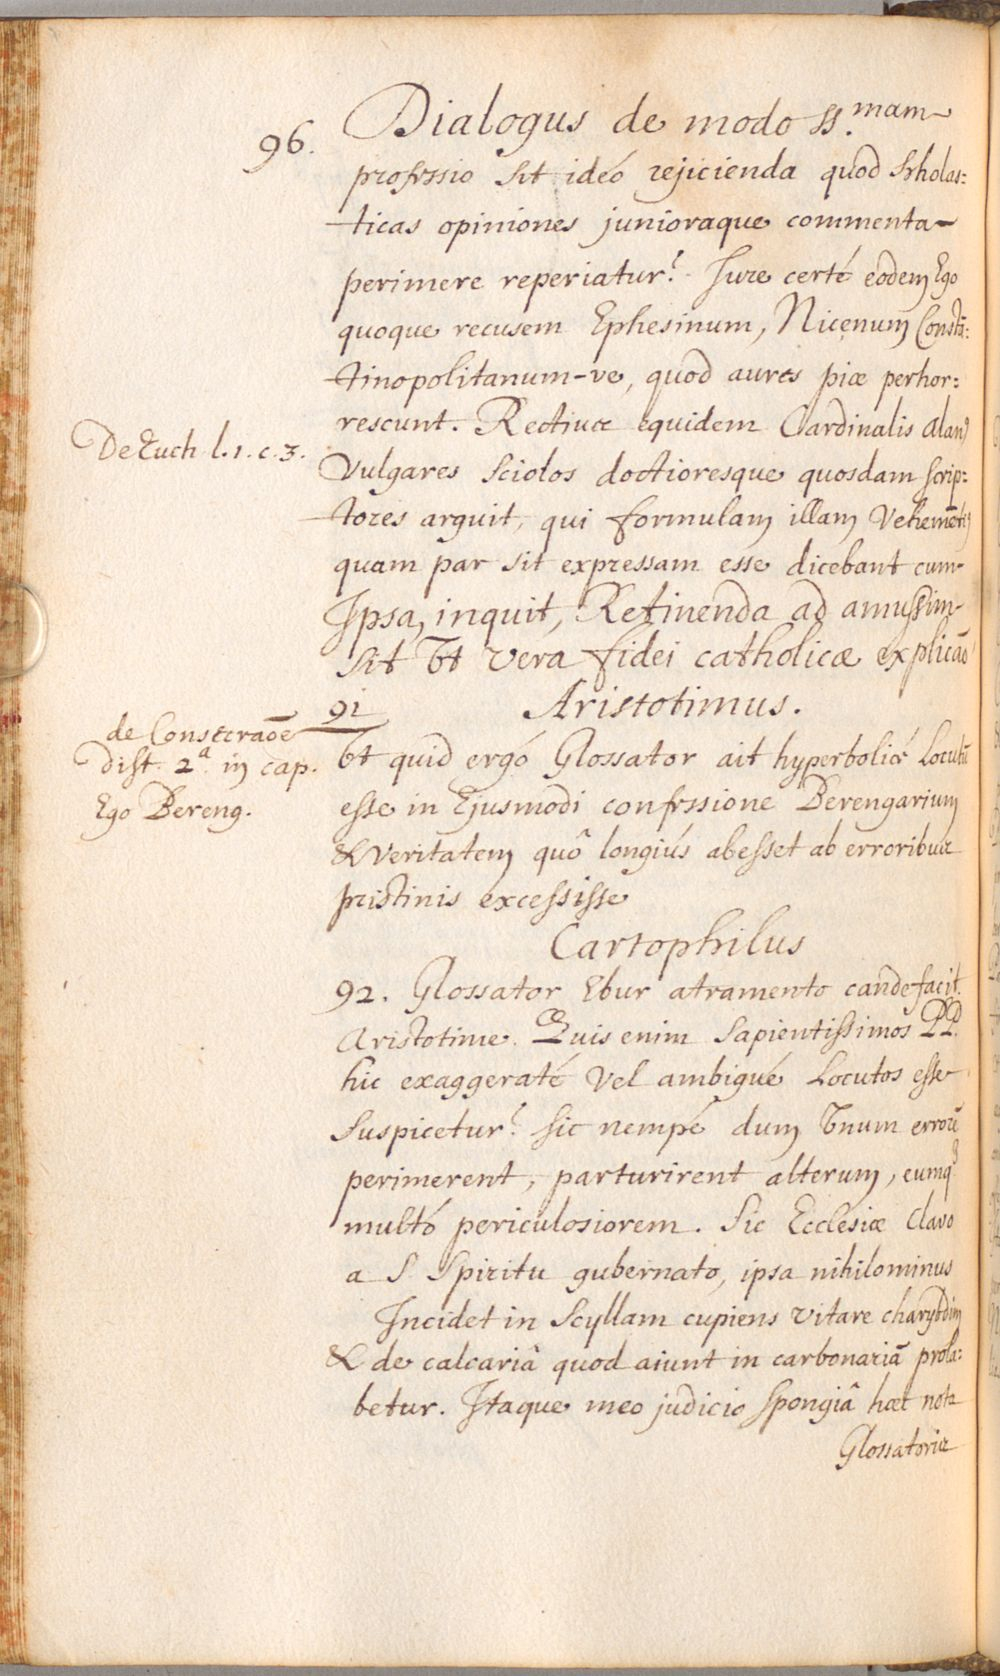 96.
Dialogus de modo SS.mam
professio sit ideó rejicienda quod Scholas=
ticas opiniones junioraque commenta
perimere reperiatur? Jure certé eodem Ego
quoque recusem Ephesinum, Nicenum Constā=
tinopolitanum-ve, quod aures piæ perhor=
rescunt. Rectius equidem Cardinalis Alanꝰ
De Euch l. 1. c. 3.
Vulgares Sciolos doctioresque quosdam scrip=
tores arguit, qui formulam illam Vehemētiꝰ
quam par sit expressam esse dicebant cum
Ipsa, inquit, Retinenda ad amussim
sit Vt vera fidei catholicæ explicāo
91 Aristotimus.
de Consecraōe
dist. 2ª. in cap.
Ego Bereng.
Vt quid ergó Glossator ait hyperbolicé Locutū
esse in Ejusmodi confessione Berengarium
& veritatem quô longiús abesset ab erroribus
pristinis excessisse
Cartophilus
92. Glossator Ebur atramento candefacit
Aristotime. Quis enim Sapientissimos PP.
hic exaggeraté Vel ambigué Locutos esse
Suspicetur? sic nempé dum Vnum errorē
perimerent, parturirent alterum, eumq
multó periculosiorem. Sic Ecclesiæ Clavo
a S Spiritu gubernato, ipsa nihilominus
Incidet in Scyllam cupiens vitare charybdim
& de calcariâ quod aiunt in carbonariā prola=
betur. Itaque meo judicio spongiâ hæc nota
Glossatoris